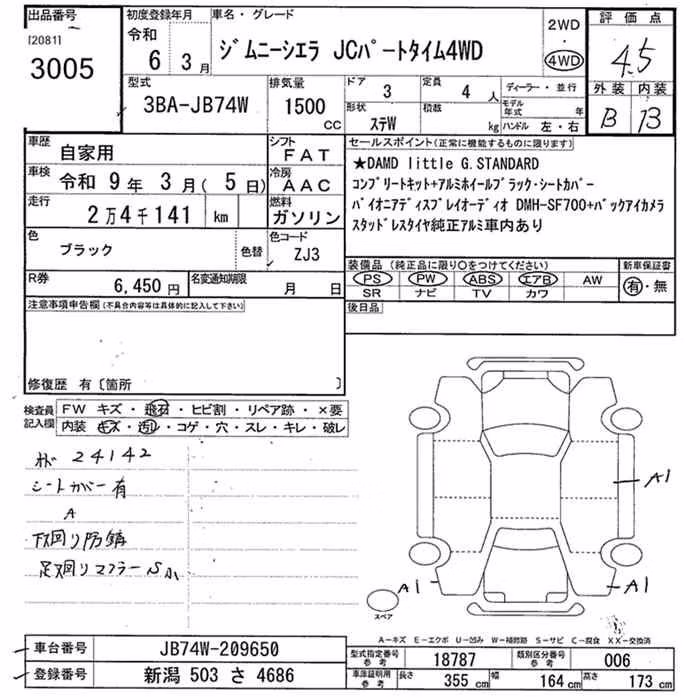 出品番号
[20811]
3005
初度登録年月
令和
6 3月
車名・グレード
ジムニーシエラ JCパートタイム4WD
2WD
・
4WD
評価点
4.5
外装 内装
B B
型式
3BA-JB74W
排気量
1500
CC
ドア
3
定員
4人
ディーラー・並行
形状
ステW
積載
kg
モデル年式 年
ハンドル 左・右
車歴
自家用
シフト
FAT
車検
令和 9年 3月( 5日)
冷房
AAC
走行
2万4千141 km
燃料
ガソリン
色
ブラック
色替
色コード
ZJ3
R券
6,450円
名変通知期限
月 日
セールスポイント(正常に機能するものに限ります)
★DAMD little G.STANDARD
コンプリートキット+アルミホイールブラック・シートカバー
パイオニアディスプレイオーディオ DMH-SF700+バックアイカメラ
スタッドレスタイヤ純正アルミ車内あり
装備品(純正品に限り○をつけてください)
新車保証書
PS PW ABS エアB AW
SR ナビ TV カワ
有・無
後日品
注意事項申告欄(不具合内容等は具体的に記入して下さい)
修復歴 有〔箇所 〕
検査員記入欄
FW キズ・飛石・ヒビ割・リペア跡・×要
内装・キズ・汚レ・コゲ・穴・スレ・キレ・破レ
24142
シートカバー有
A
下回り防錆
足回りマフラーS小
A1
A1
A1
スペア
A-キズ E-エクボ U-凹み W-補修跡 S-サビ C-腐食 XX-交換済
車台番号
JB74W-209650
登録番号
新潟 503 さ 4686
型式指定番号
参考
18787
類別区分番号
参考
006
車庫証明用
参考
長さ
355 cm
幅
164 cm
高さ
173 cm